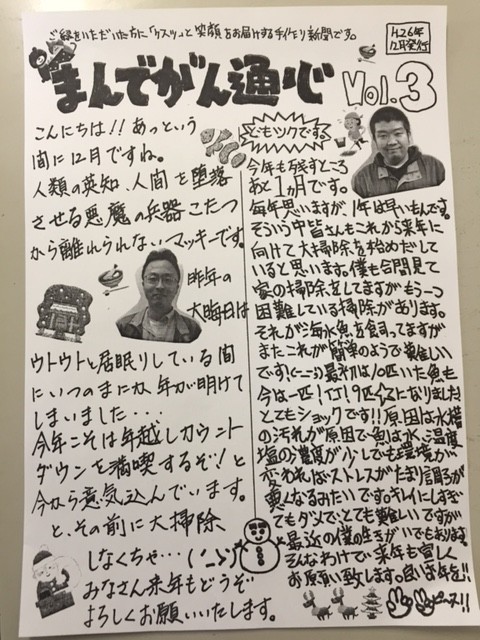 ご縁をいただいた方に「クスッ」と笑顔をお届けする手作り新聞です。
H26年
12月発行
まんでがん通心
Vol.3
こんにちは!!あっという
間に12月ですね。
人類の英知、人間を堕落
させる悪魔の兵器こたつ
から離れられないマッキーです。
昨年の
大晦日は
ウトウトと居眠りしている間
にいつのまにか年が明けて
しまいました・・・
今年こそは年越しカウント
ダウンを満喫するぞ!と
今から意気込んでいます。
と、その前に大掃除
しなくちゃ…(^_>^)
みなさん来年もどうぞ
よろしくお願いいたします。
ともツクです。
今年も残すところ
あと1ヵ月です。
毎年思いますが、1年は早いもんです。
そういう中皆さんもこれから来年に
向けて大掃除を始めだして
いると思います。僕も合間見て
家の掃除をしてますがもう一つ
困難している掃除があります。
それが海水魚を飼ってますが
またこれが簡単のようで難しい
です!(ー_ー;)最初は10匹いた魚も
今は一匹!!
になりました
とてもショックです!!原因は水槽
の汚れが原因で魚は水、温度
塩の濃度が少しでも環境が
変わればストレスがたまり調子が
悪くなるみたいです。キレイにしすぎ
てもダメで、とても難しいですが
最近の僕の生きがいでもあります。
そんなわけで来年も宜しく
お願い致します。良いお年を!!
ピース!!